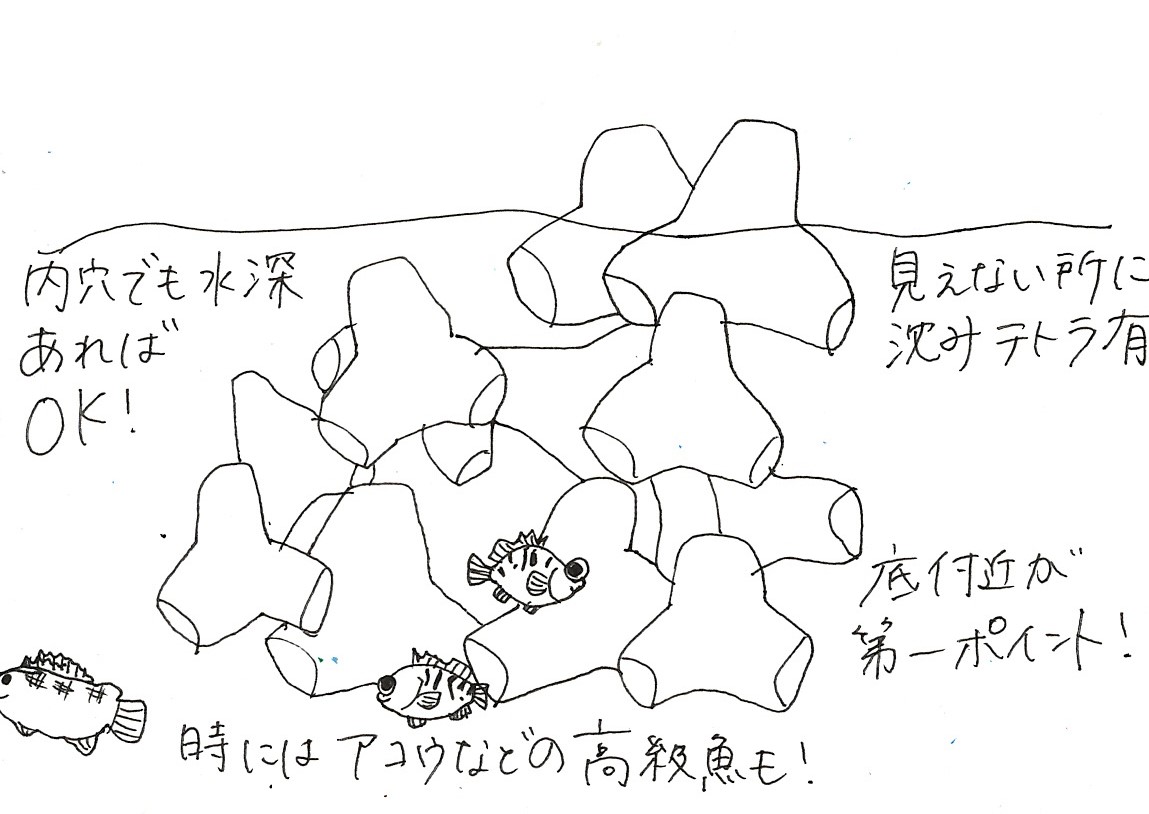 内穴でも水深
あれば
OK!
見えない所に
沈みテトラ有
底付近が
第一ポイント!
時にはアコウなどの高級魚も!